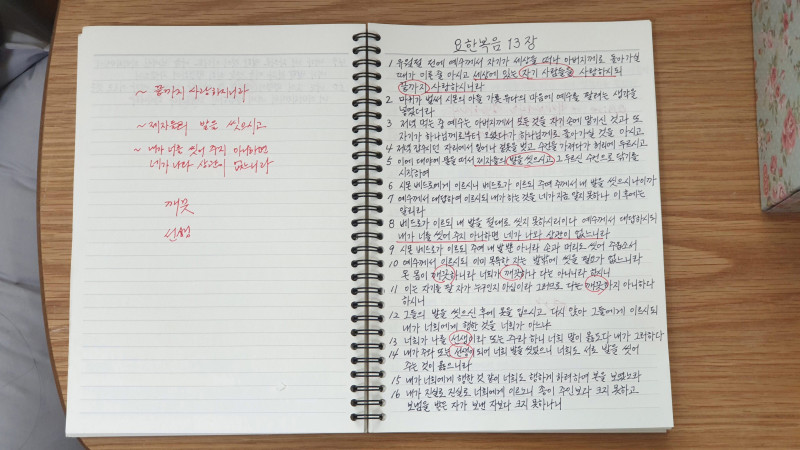 ~ 끝까지 사랑하시니라
~ 제자들의 발을 씻으시고
~ 내가 너를 씻어 주지 아니하면
네가 나와 상관이 없느니라
깨끗
선생
요한복음 13장
1 유월절 전에 예수께서 자기가 세상을 떠나 아버지께로 돌아가실
때가 이른 줄 아시고 세상에 있는 자기 사람들을 사랑하시되
끝까지 사랑하시니라
2 마귀가 벌써 시몬의 아들 가룟 유다의 마음에 예수를 팔려는 생각을
넣었더라
3 저녁 먹는 중 예수는 아버지께서 모든 것을 자기 손에 맡기신 것과 또
자기가 하나님께로부터 오셨다가 하나님께로 돌아가실 것을 아시고
4 저녁 잡수시던 자리에서 일어나 겉옷을 벗고 수건을 가져다가 허리에 두르시고
5 이에 대야에 물을 떠서 제자들의 발을 씻으시고 그 두르신 수건으로 닦기를
시작하여
6 시몬 베드로에게 이르시니 베드로가 이르되 주여 주께서 내 발을 씻으시나이까
7 예수께서 대답하여 이르시되 내가 하는 것을 네가 지금 알지 못하나 이 후에는
알리라
8 베드로가 이르되 내 발을 절대로 씻지 못하시리이다 예수께서 대답하시되
내가 너를 씻어 주지 아니하면 네가 나와 상관이 없느니라
9 시몬 베드로가 이르되 주여 내 발뿐 아니라 손과 머리도 씻어 주옵소서
10 예수께서 이르시되 이미 목욕한 자는 발밖에 씻을 필요가 없느니라
온 몸이 깨끗하니라 너희가 깨끗하나 다는 아니니라 하시니
11 이는 자기를 팔 자가 누구인지 아심이라 그러므로 다는 깨끗하지 아니하다
하시니라
12 그들의 발을 씻으신 후에 옷을 입으시고 다시 앉아 그들에게 이르시되
내가 너희에게 행한 것을 너희가 아느냐
13 너희가 나를 선생이라 또는 주라 하니 너희 말이 옳도다 내가 그러하다
14 내가 주와 또는 선생이 되어 너희 발을 씻었으니 너희도 서로 발을 씻어
주는 것이 옳으니라
15 내가 너희에게 행한 것 같이 너희도 행하게 하려하여 본을 보였노라
16 내가 진실로 진실로 너희에게 이르노니 종이 주인보다 크지 못하고
보냄을 받은 자가 보낸 자보다 크지 못하나니